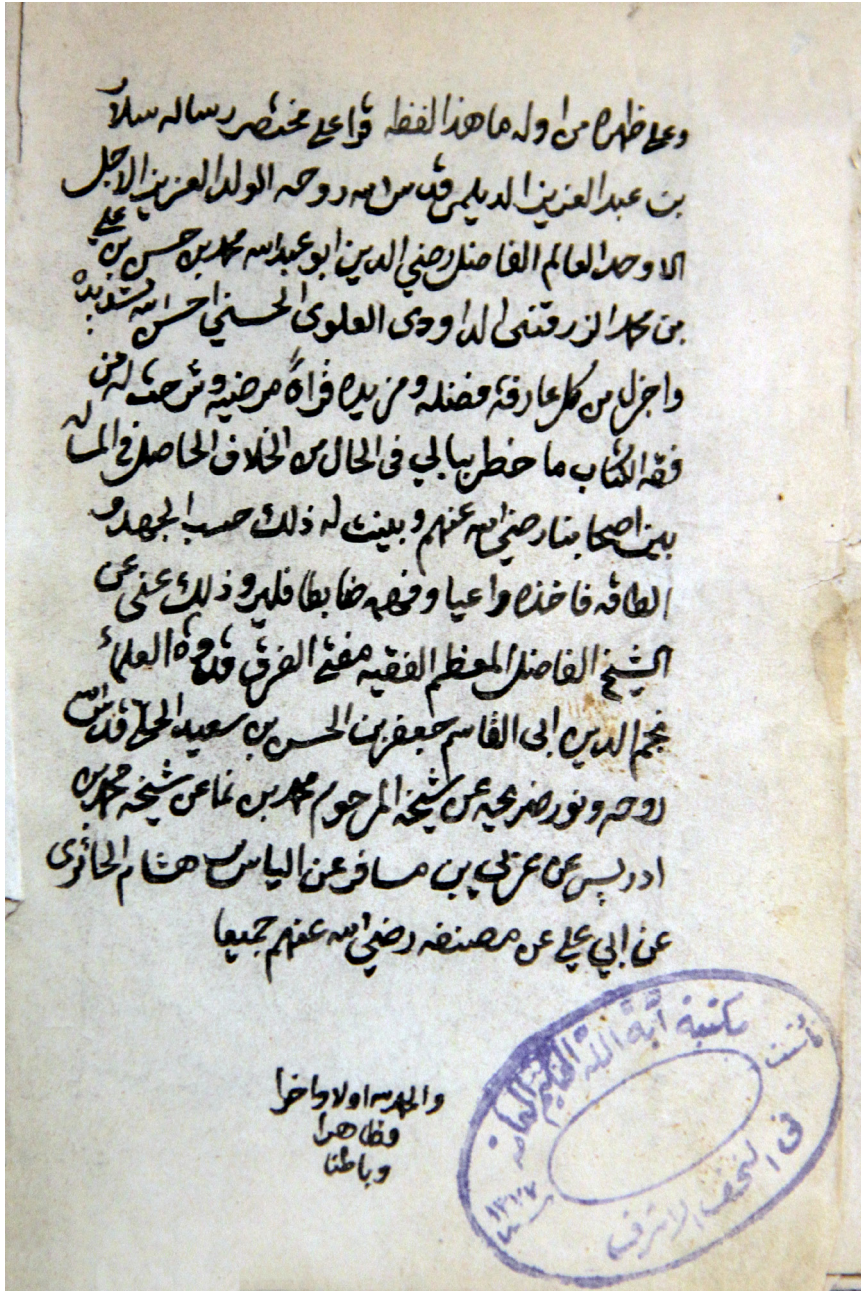 وعلى ظهره من اوله ما هذا لفظه قرا علي مختصر رساله سلار
بن عبد العزيز الديلمي قدس الله روحه الولد العزيز الاجل
الاوحد العالم الفاضل رضي الدين ابو عبد الله محمد بن حسن بن علي
بن محمد الزرقتني الداودى العلوى الحسني احسن الله تسديده
واجزل من كل عارفة فضله ومزيده قراة مرضيه وشرحت له من
فقه الكتاب ما خطر ببالي فى الحال من الخلاف الحاصل في المسائل
بين اصحابنا رضي الله عنهم وبينت له ذلك حسب الجهد و
الطاقه فاخذه واعيا وفهمه ضابطا فليرو ذلك عني عن
الشيخ الفاضل المعظم الفقيه مفتي الفرق قدوة العلماء
نجم الدين ابى القاسم جعفر بن الحسن بن سعيد الحلي قدس الله
روحه ونور ضريحه عن شيخه المرحوم محمد بن نما عن شيخه محمد بن
ادريس عن عربي بن مسافر عن الياس بن هشام الحائرى
عن ابي علي عن مصنفه رضي الله عنهم جميعا
والحمد لله اولا واخرا
وظاهرا
وباطنا
مكتبة آية الله الحكيم العامة
في النجف الاشرف
١٣٧٧